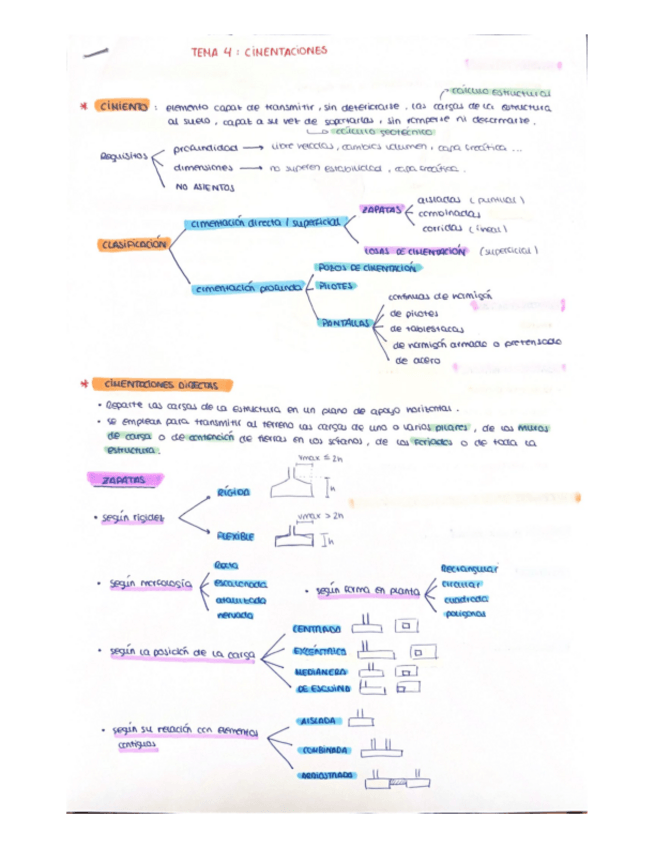 TEMA 4 : CIMENTACIONES
cálculo estructural
* CIMIENTO : elemento capaz de transmitir, sin deteriorarse, las cargas de la estructura
al suelo, capaz a su vez de soportarlas, sin romperse ni deformarse.
cálculo geotécnico
Requisitos
profundidad → libre heladas, cambios volumen, capa freática ...
dimensiones → no superen estabilidad, capa freática.
NO ASIENTOS
CLASIFICACIÓN
cimentación directa / superficial
ZAPATAS
aisladas (puntual)
combinadas
corridas (lineal)
LOSAS DE CIMENTACIÓN (superficial)
cimentación profunda
POZOS DE CIMENTACIÓN
PILOTES
PANTALLAS
continuas de hormigón
de pilotes
de tablestacas
de hormigón armado o pretensado
de acero
* CIMENTACIONES DIRECTAS
• Reparte las cargas de la estructura en un plano de apoyo horizontal.
• se emplean para transmitir al terreno las cargas de uno o varios pilares, de los muros
de carga o de contención de tierras en los sótanos, de los forjados o de toda la
estructura.
ZAPATAS
• según rigidez
RÍGIDA
vmax ≤ 2h
h
FLEXIBLE
vmax > 2h
h
• según morfología
Recta
escalonada
ataluzada
nervada
• según forma en planta
Rectangular
circular
cuadrada
polígonas
• según la posición de la carga
CENTRADA
EXCÉNTRICA
MEDIANERA
DE ESQUINA
• según su relación con elementos
contiguos
AISLADA
COMBINADA
ARRIOSTRADA